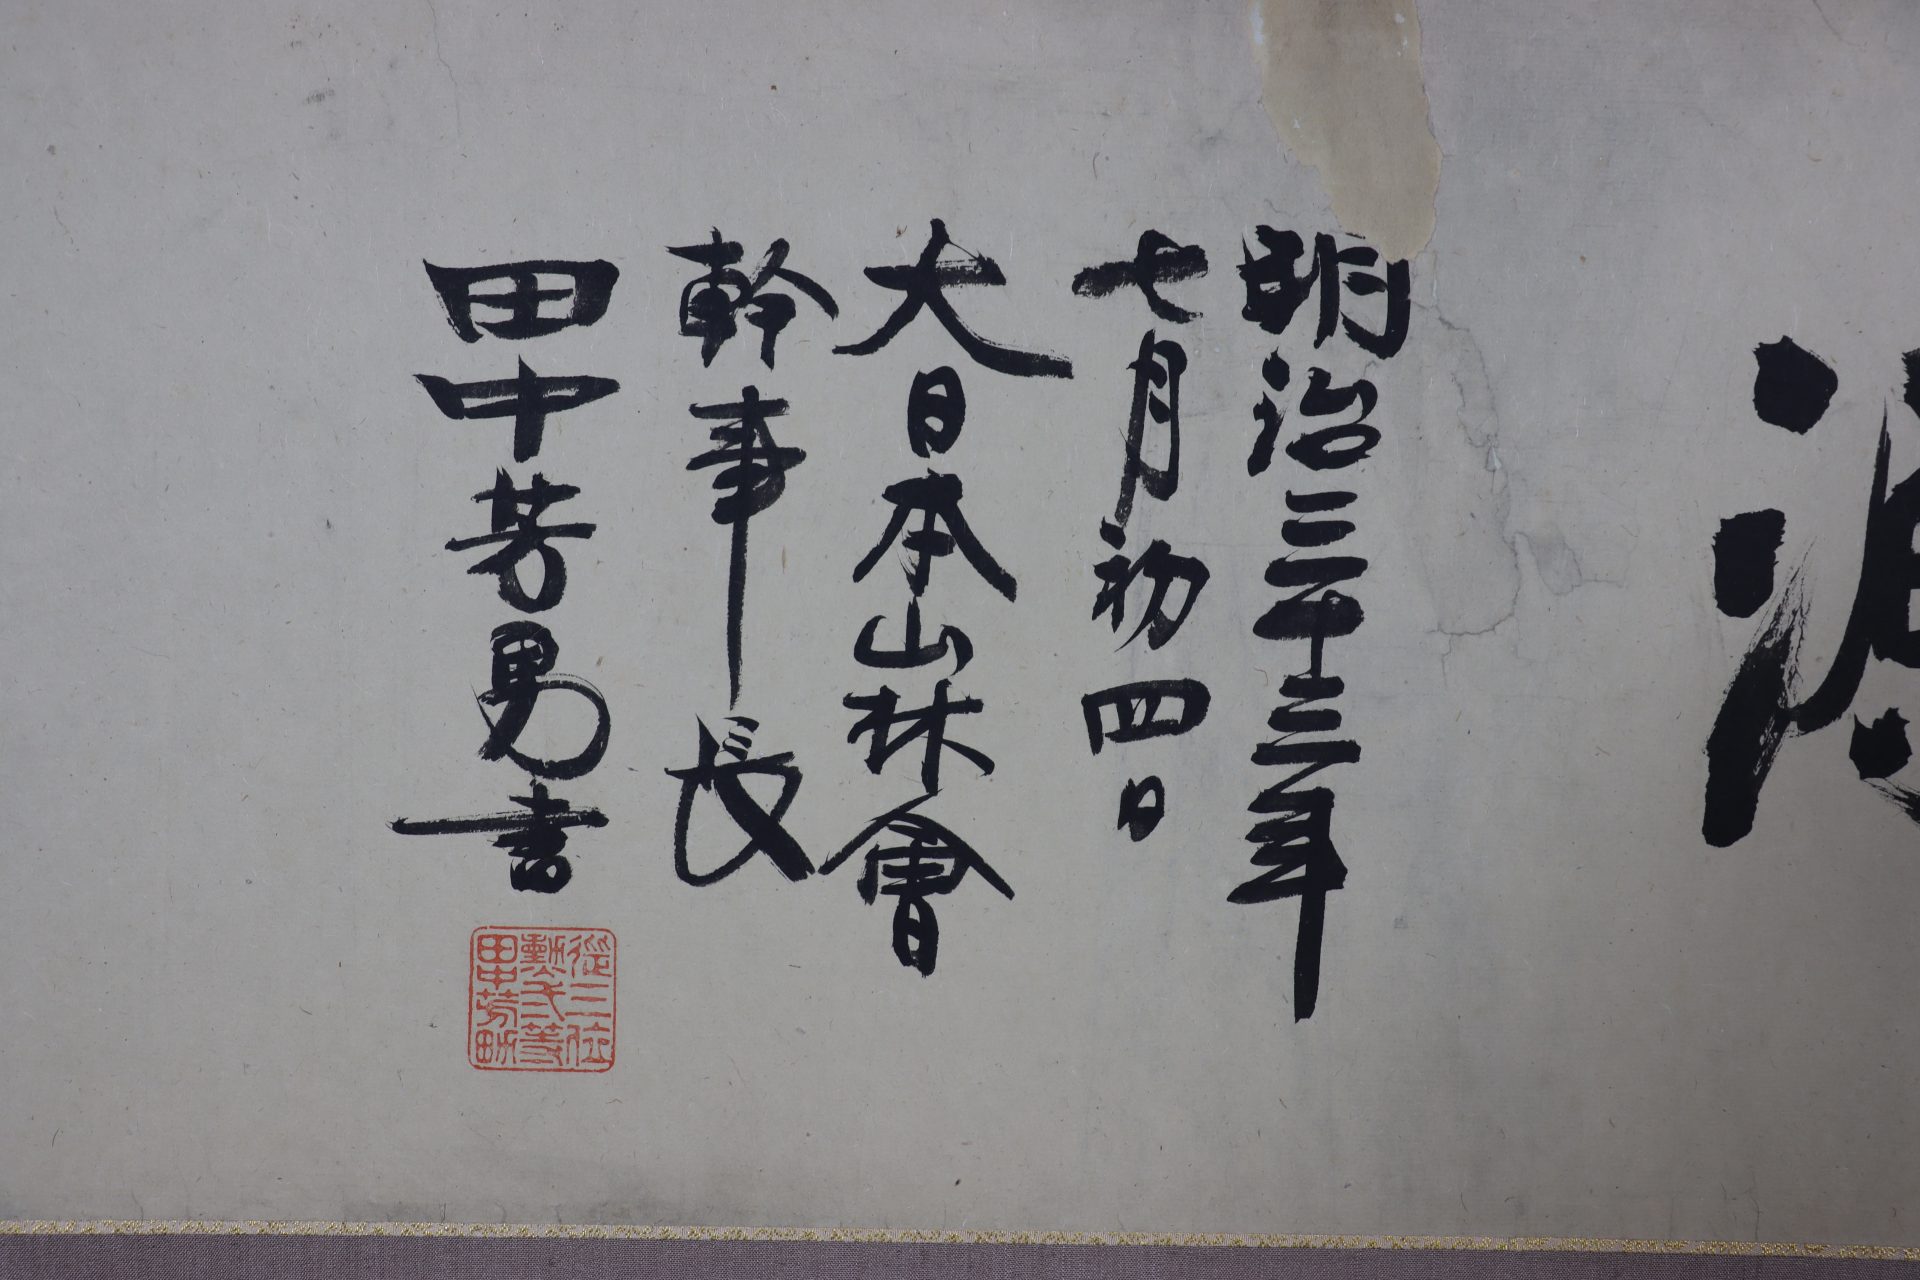 源
明治三十三年
七月初四日
大日本山林會
幹事長
田中芳男書
從三位
勲二等
田中芳男